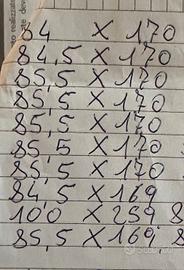 84 X 170
84,5 X 170
85,5 X 170
85,5 X 170
85,5 X 170
85,5 X 170
85,5 X 170
84,5 X 169
100 X 259 8
85,5 X 169 8